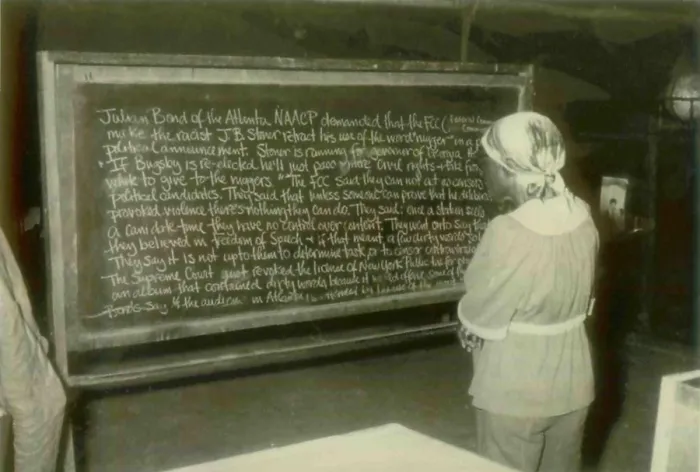 Julian Bond of the Atlanta NAACP demanded that the FCC (
make the racist J.B. Stoner retract his use of the word "nigger" on a
political announcement. Stoner is running for governor of Georgia. He
"If Bugsby is re-elected he'll just pass more civil rights + the
to give to the niggers." The FCC said they can not act as censors
Political candidates. They said that unless someone can prove that he
provoked violence there's nothing they can do. They said: once a station sells
a candidate time they have no control over content. They went on to say that
they believed in freedom of Speech + if that meant a few dirty words
They say it is not up to them to determine task or to censor
The Supreme Court just revoked the license of New York Public
an album that contained dirty words because it
Bonds say if the audience in Atlanta